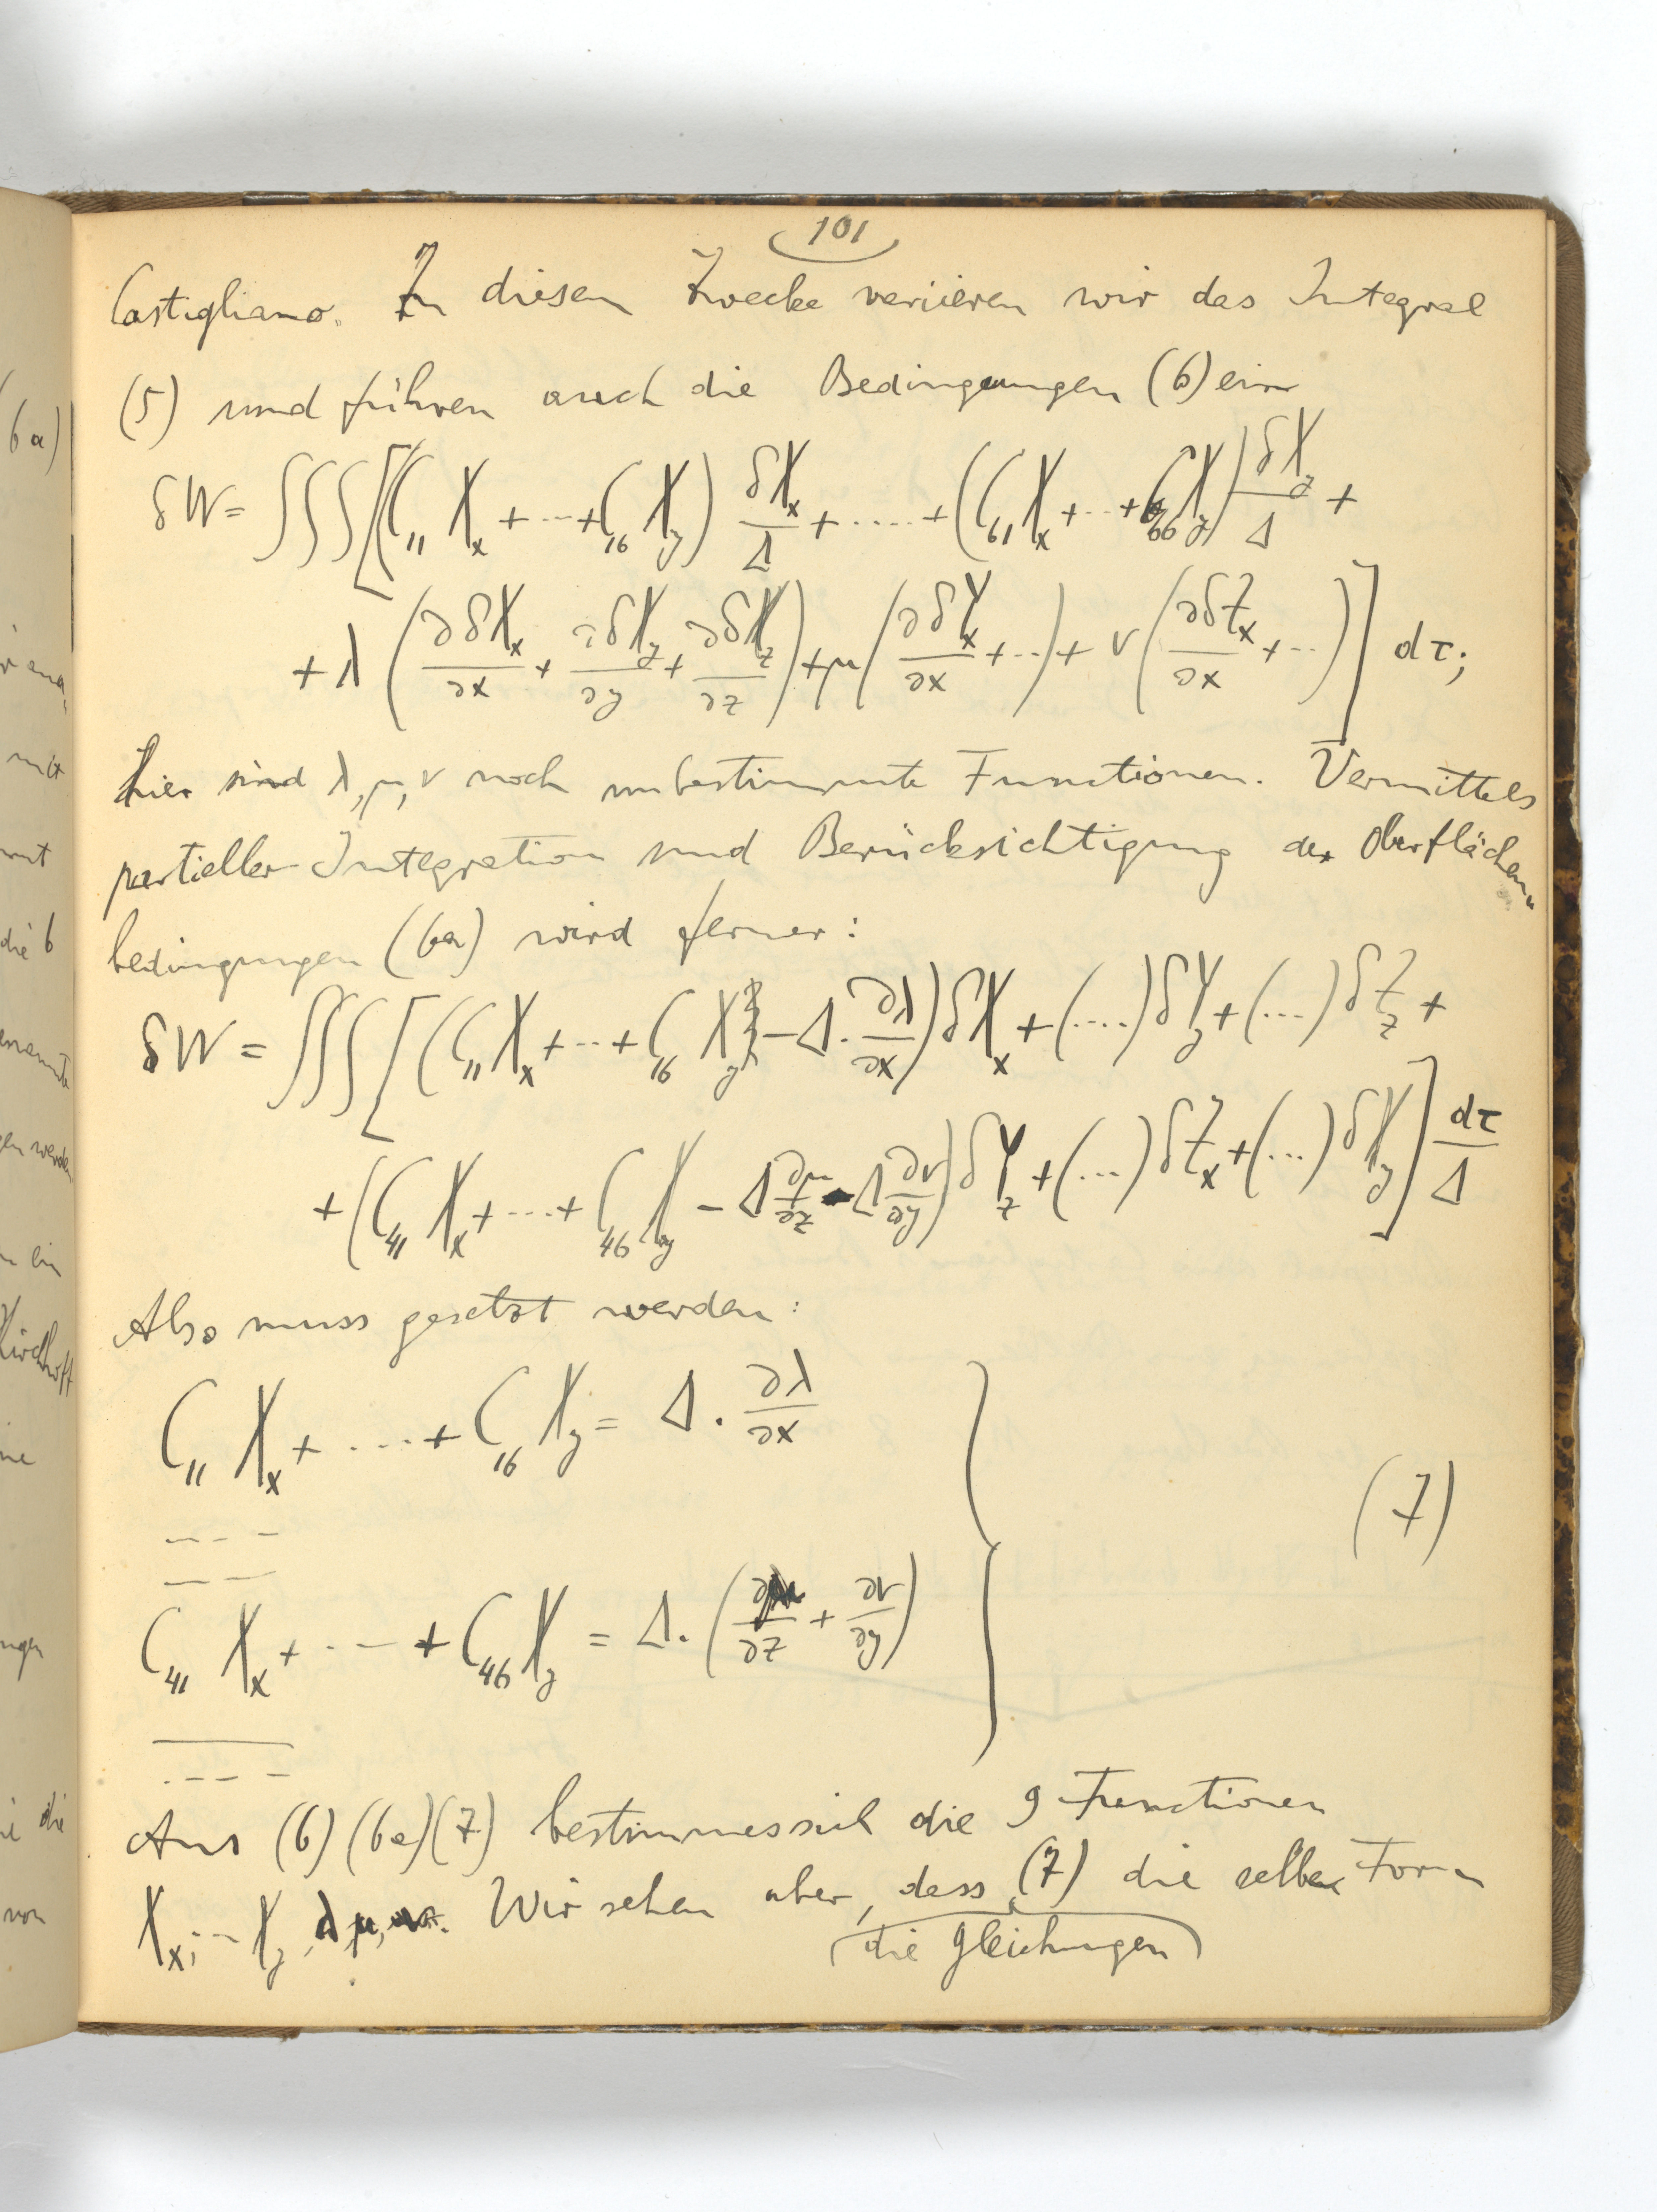 101
Castigliano. Zu diesem Zwecke variieren wir das Integral
(5) und führen auch die Bedingungen (6) ein
δW = ∫∫∫[(C₁₁ X_x + ··· + C₁₆ X_y) δX_x/Δ + ····· + (C₆₁ X_x + ··· + C₆₆ X_y) δX_y/Δ +
+ λ (∂δX_x/∂x + ∂δX_y/∂y + ∂δX_z/∂z) + μ (∂δY_x/∂x + ···) + ν (∂δZ_x/∂x + ···)] dτ;
hier sind λ, μ, ν noch unbestimmte Functionen. Vermittels
partieller Integration und Berücksichtigung der Oberflächen-
bedingungen (6a) wird ferner:
δW = ∫∫∫[(C₁₁ X_x + ··· + C₁₆ X_y − Δ· ∂λ/∂x) δX_x + (····) δY_y + (···) δZ_z +
+ (C₄₁ X_x + ···· + C₄₆ X_y − Δ ∂μ/∂z − Δ ∂ν/∂y) δY_z + (···) δZ_x + (···) δX_y] dτ/Δ
Also muss gesetzt werden:
C₁₁ X_x + ····· + C₁₆ X_y = Δ · ∂λ/∂x
– – – –
– – –
(7)
C₄₁ X_x + ··· + C₄₆ X_y = Δ · (∂μ/∂z + ∂ν/∂y)
– – – –
Aus (6) (6a) (7) bestimmen sich die 9 Functionen
X_x, ·· X_y, λ, μ, ν. Wir sehen aber, dass (7) die selbe Form
die Gleichungen
(6a)
mit
die 6
gen werden
ein
Kirchhoff
die
von